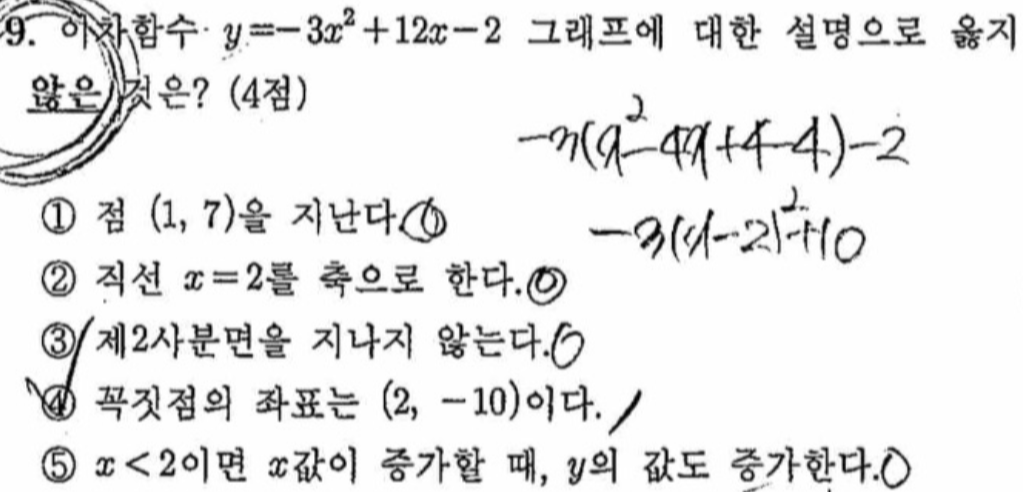 9. 이차함수 y=-3x²+12x-2 그래프에 대한 설명으로 옳지
않은 것은? (4점)
-3(x²-4x+4-4)-2
-3(x-2)²+10
① 점 (1, 7)을 지난다.
② 직선 x=2를 축으로 한다.
③ 제2사분면을 지나지 않는다.
④ 꼭짓점의 좌표는 (2, -10)이다.
⑤ x<2이면 x값이 증가할 때, y의 값도 증가한다.